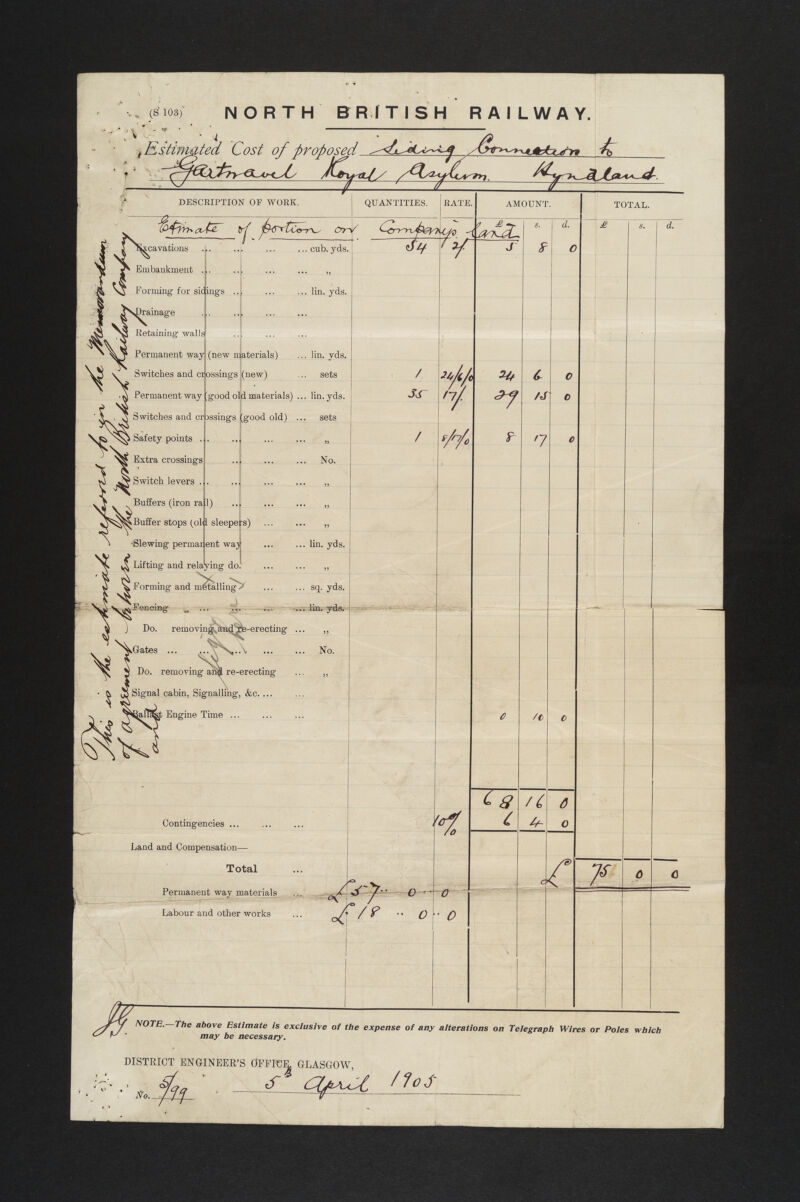 (S 103) NORTH BRITISH RAILWAY.
Estimated Cost of proposed Siding Connection to
Gartnavel Royal Asylum. Hyndland.
DESCRIPTION OF WORK. QUANTITIES. RATE. AMOUNT. TOTAL.
£ s. d. £ s. d.
Etimate of portion on Company's land
Excavations ... ... ... ... cub. yds. 54 2/ 5 8 0
Embankment ... ... ... ... ,,
Forming for sidings ... ... ... lin. yds.
Drainage ... ... ... ...
Retaining walls ... ... ...
Permanent way (new materials) ... lin. yds.
Switches and crossings (new) ... sets 1 24/6/0 24 6 0
Permanent way (good old materials) ... lin. yds. 35 17/. 29 15 0
Switches and crossings (good old) ... sets
Safety points ... ... ... ... ,, 1 8/17/0 8 17 0
Extra crossings ... ... ... No.
Switch levers ... ... ... ... ,,
Buffers (iron rail) ... ... ... ,,
Buffer stops (old sleepers) ... ... ,,
Slewing permanent way ... ... lin. yds.
Lifting and relaying do. ... ... ,,
Forming and metalling ... ... sq. yds.
Fencing ,, ... ... ... lin. yds.
Do. removing and re-erecting ... ,,
Gates ... ... ... ... ... No.
Do. removing and re-erecting ... ,,
Signal cabin, Signalling, &c. ... ...
Ballast Engine Time ... ... ... 0 10 0
68 16 0
Contingencies ... ... ... 10% 6 4 0
Land and Compensation—
Total ... £ 75 0 0
Permanent way materials ... £57 .. 0 .. 0
Labour and other works ... £18 .. 0 .. 0
This is the estimate referred to in the Memorandum
of agreement between the North British Railway Company
and
JG NOTE.—The above Estimate is exclusive of the expense of any alterations on Telegraph Wires or Poles which
may be necessary.
DISTRICT ENGINEER'S OFFICE, GLASGOW,
5th April 1905
No. 5/99